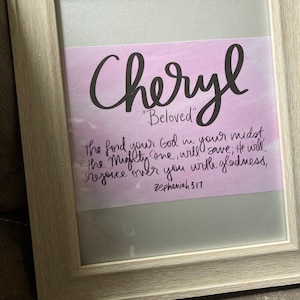 Cheryl
"Beloved"
The Lord your God in your midst,
the Mighty One, will save; He will
rejoice over you with gladness,
Zephaniah 3:17